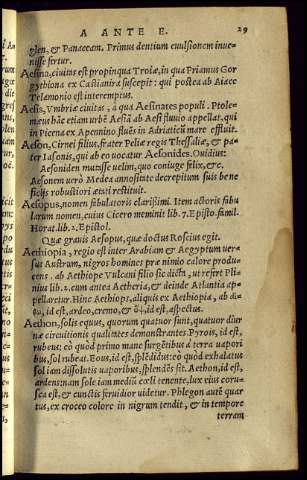 A ANTE E. 29
plen, & Panaceam. Primus dentium euulsionem inue-
nisse fertur.
Aesina, ciuius est propinqua Troiæ, in qua Priamus Gor
gythiona ex Castianira suscepit: qui postea ab Aiace
Telamonio est interemptus.
Aesis, Vmbriæ ciuitas, à qua Aesinates populi. Ptole-
meus hãc etiam urbẽ Aesiã ab Aesi fluuio appellat, qui
in Picena ex Apennino fluẽs in Adriaticũ mare effluit.
Aeson, Cirnei filius, frater Peliæ regis Thessaliæ, & pa-
ter Iasonis, qui ab eo uocatur Aesonides. Ouidius:
Aesoniden mutisse uelim, quo coniuge felix, &c.
Aesonem uerò Medea annositate decrepitum suis bene
ficijs robustiori ætati restituit.
Aesopus, nomen fabulatoris clarissimi. Item actoris fabu
larum nomen, cuius Cicero meminit lib. 7. Episto. famil.
Horat. lib. 2. Epistol.
Quæ grauis Aesopus, quæ doctus Roscius egit.
Aethiopia, regio est inter Arabiam & Aegyptum uer-
sus Austrum, nigros homines præ nimio calore produ-
cens. ab Aethiope Vulcani filio sic dicta, ut refert Pli-
nius lib. 2. cum antea Aetheria, & deinde Atlantia ap-
pellaretur. Hinc Aethiops, aliquis ex Aethiopia, ab
id est, ardeo, cremo, & id est, aspectus.
Aethon, solis equus, quorum quatuor sunt, quatuor diur
næ circuitionis qualitates demonstrantes. Pyrois, id est,
rubeus: eò quòd primo mane surgẽtibus à terra uapori
bus, sol rubeat. Eous, id est, splẽdidus: eò quòd exhalatus
sol iam dissolutis uaporibus, splendẽs sit. Aethon, id est,
ardens: nam sole iam mediũ cœli tenente, lux eius corus
ca est, & cunctis feruidior uidetur. Phlegon autẽ quar
tus, ex croceo colore in nigrum tendit, & in tempore
terram